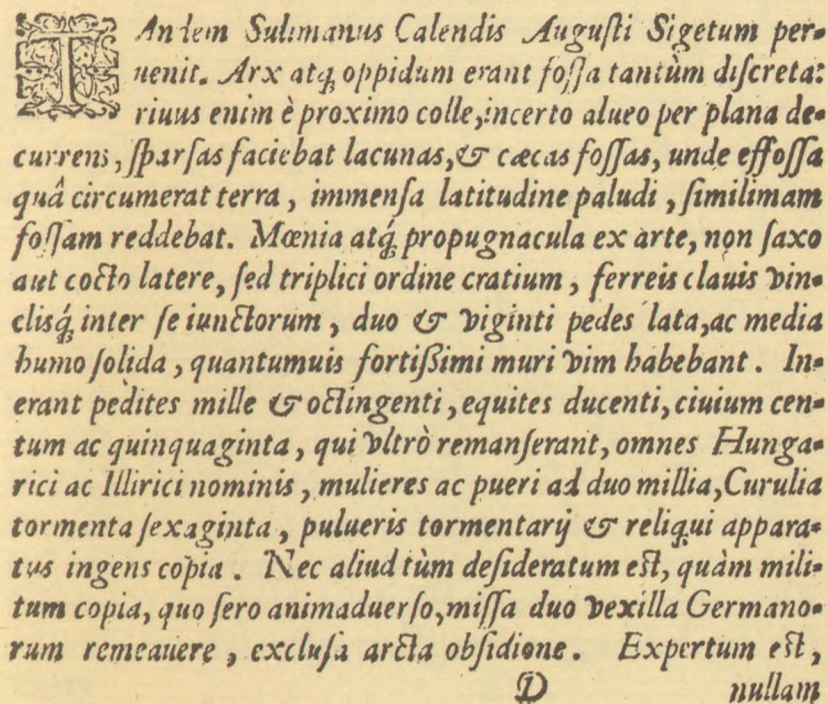 TAndem Sulimanus Calendis Augusti Sigetum per-
uenit. Arx atq; oppidum erant fossa tantùm discreta:
riuus enim è proximo colle, incerto alueo per plana de-
currens, sparsas faciebat lacunas, & cæcas fossas, unde effossa
quâ circumerat terra, immensa latitudine paludi, similimam
fossam reddebat. Mœnia atq́; propugnacula ex arte, non saxo
aut cocto latere, sed triplici ordine cratium, ferreis clauis vin-
clisq́; inter se iunctorum, duo & viginti pedes lata, ac media
humo solida, quantumuis fortißimi muri vim habebant. In-
erant pedites mille & octingenti, equites ducenti, ciuium cen-
tum ac quinquaginta, qui vltrò remanserant, omnes Hunga-
rici ac Illirici nominis, mulieres ac pueri ad duo millia, Curulia
tormenta sexaginta, pulueris tormentarij & reliqui appara-
tus ingens copia. Nec aliud tùm desideratum est, quàm mili-
tum copia, quo sero animaduerso, missa duo vexilla Germano-
rum remeauere, exclusa arcta obsidione. Expertum est,
D nullam